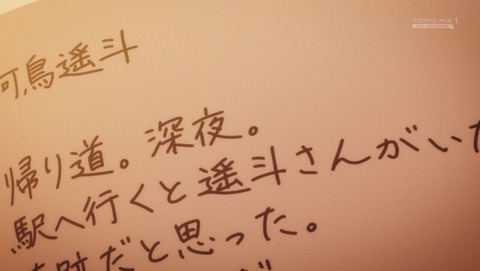 TOKYO MX 1
可鳥遥斗
帰り道。深夜。
駅へ行くと遥斗さんがいた
だと思った。